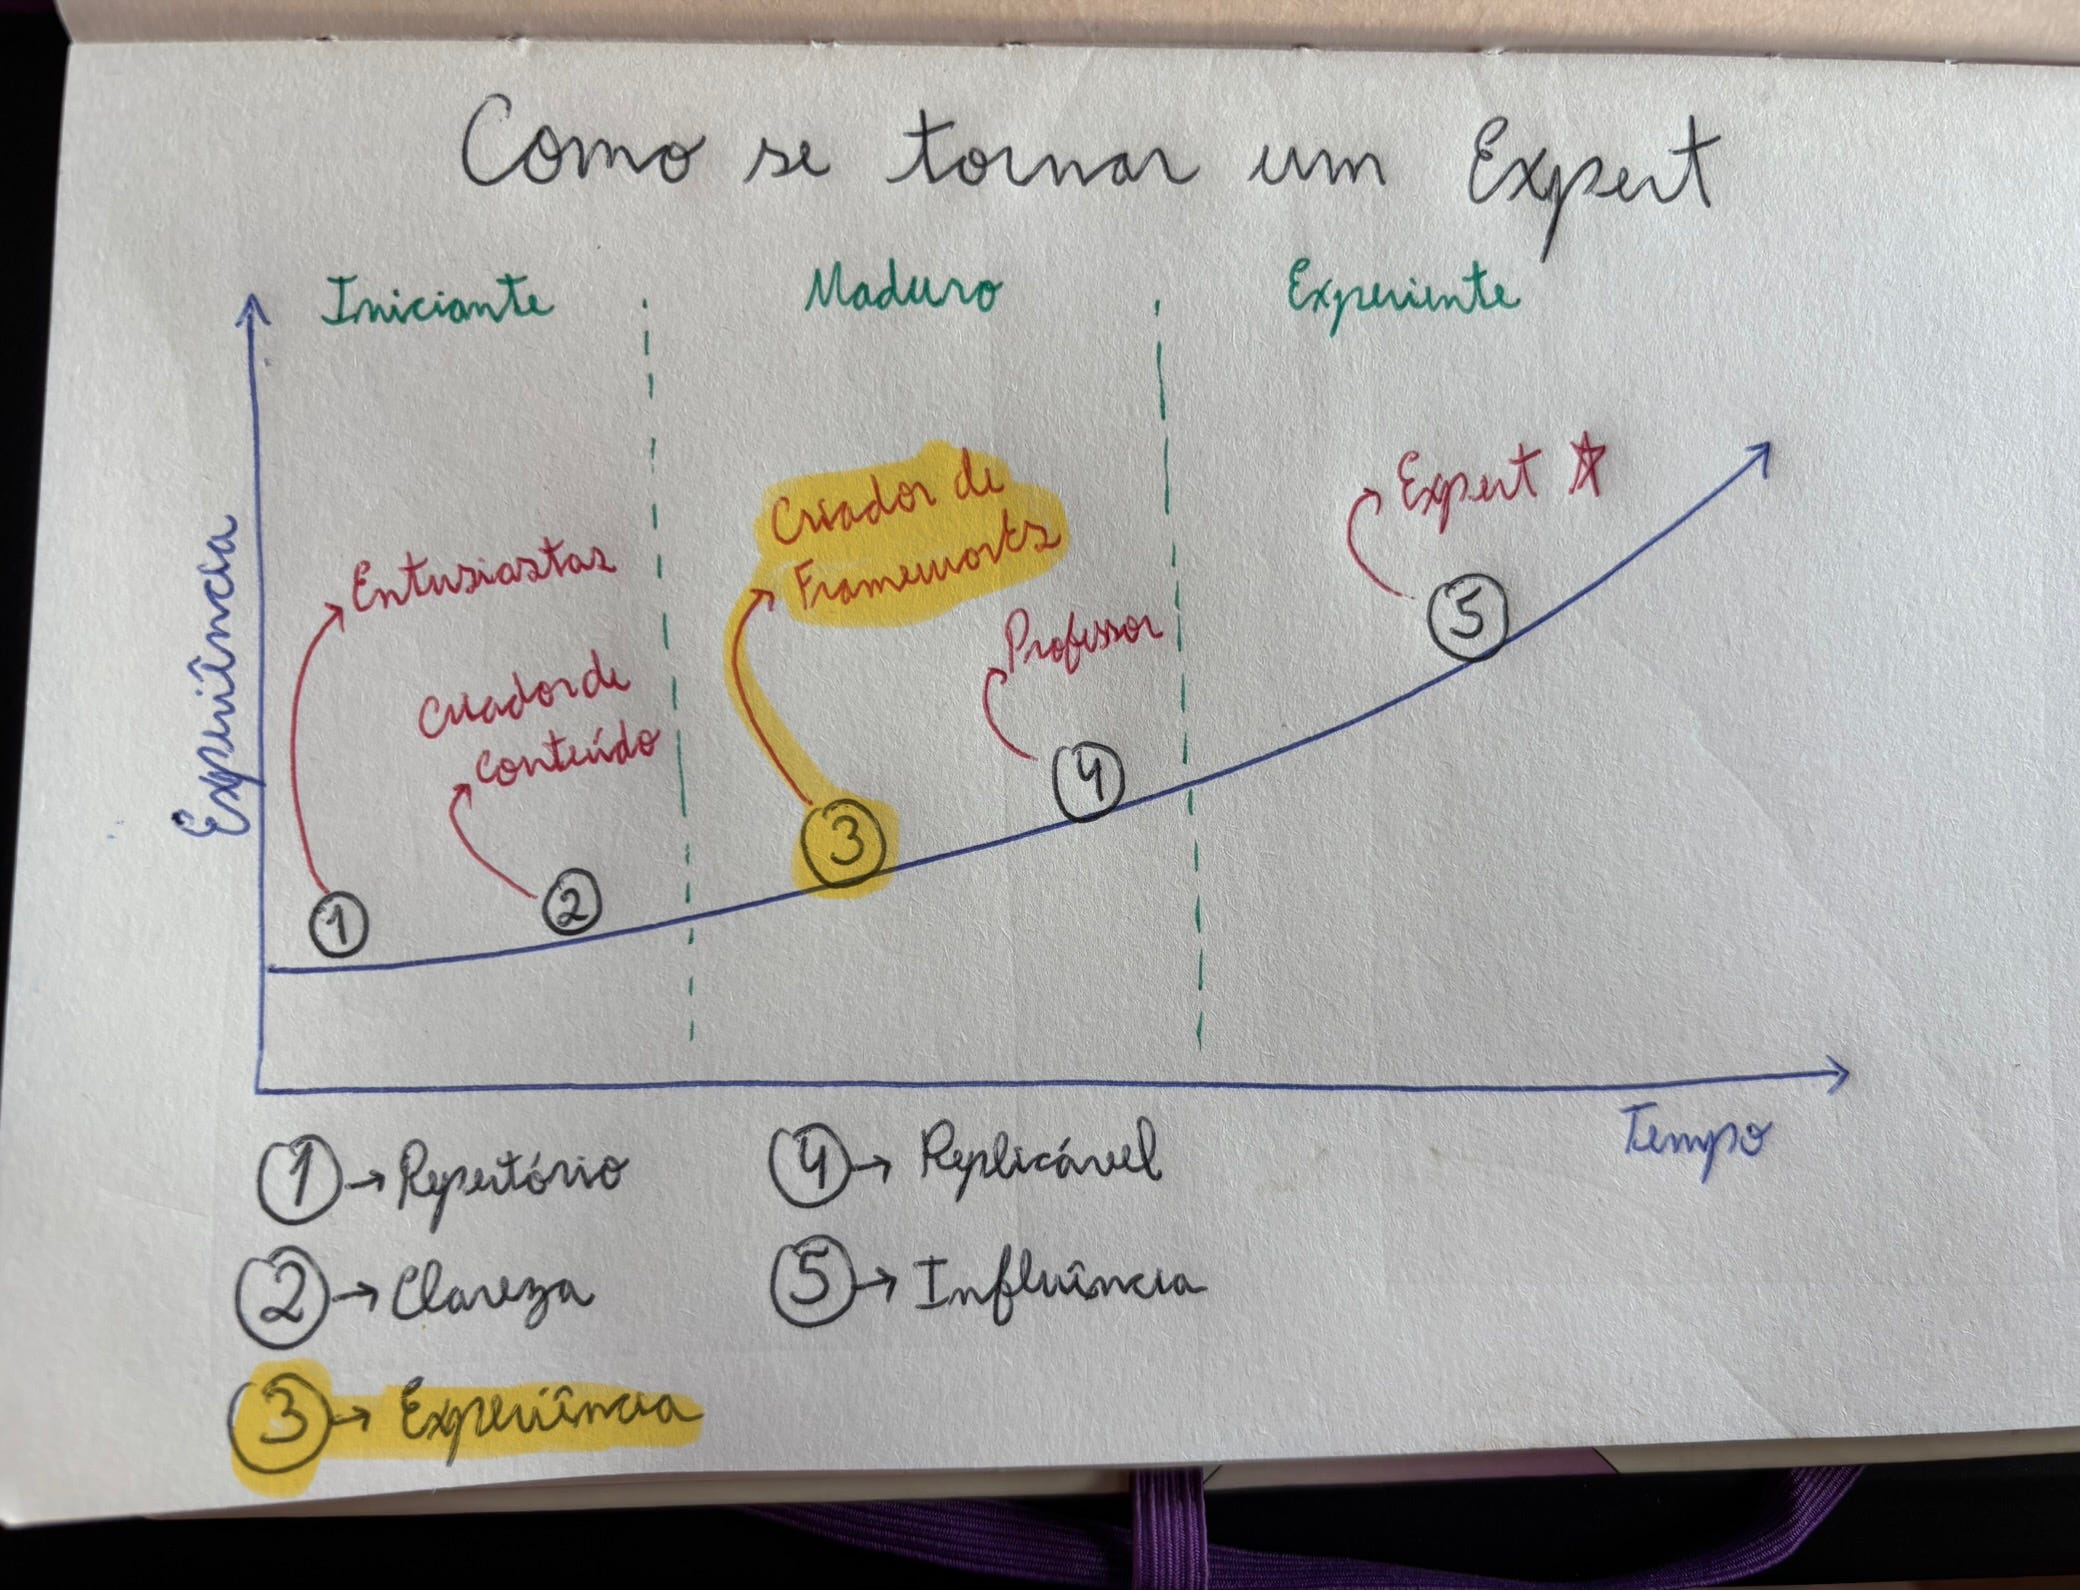 Como se tornar um Expert
Iniciante
Maduro
Experiente
Experiência
Entusiastas
Criador de
conteúdo
Criador de
Frameworks
Professor
Expert
1
2
3
4
5
Tempo
1 → Repertório
2 → Clareza
3 → Experiência
4 → Replicável
5 → Influência